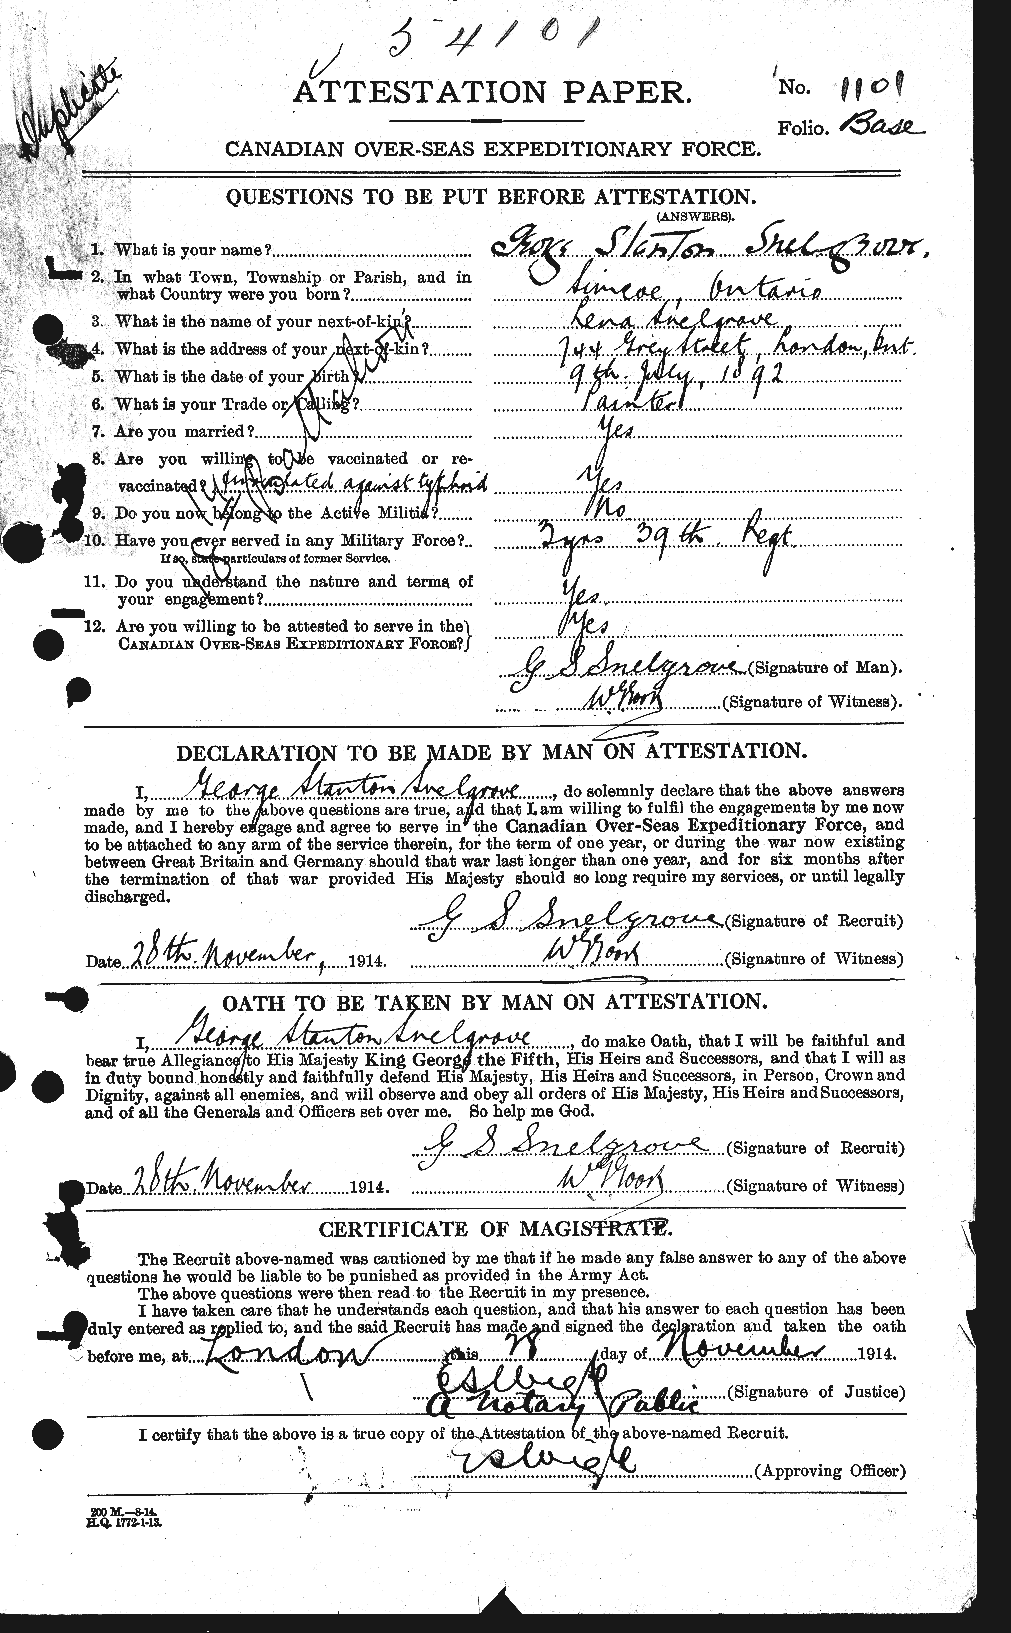 5 4101
Duplicate
ATTESTATION PAPER.
No. 1101
Folio. Base
CANADIAN OVER-SEAS EXPEDITIONARY FORCE.
QUESTIONS TO BE PUT BEFORE ATTESTATION.
(ANSWERS).
1. What is your name? George Stanton Snelgrove.
2. In what Town, Township or Parish, and in
what Country were you born? Simcoe, Ontario
3. What is the name of your next-of-kin? Lena Snelgrove
4. What is the address of your next-of-kin? 744 Grey Street, London, Ont.
5. What is the date of your birth? 9th. July, 1892
6. What is your Trade or Calling? Painter
7. Are you married? Yes
8. Are you willing to be vaccinated or re-
vaccinated? Inoculated against typhoid Yes
9. Do you now belong to the Active Militia? No
10. Have you ever served in any Military Force? 3 yrs 39th. Regt.
If so, state particulars of former Service.
11. Do you understand the nature and terms of
your engagement? Yes.
12. Are you willing to be attested to serve in the
CANADIAN OVER-SEAS EXPEDITIONARY FORCE? Yes
18th Battalion
G S Snelgrove (Signature of Man).
(Signature of Witness).
DECLARATION TO BE MADE BY MAN ON ATTESTATION.
I, George Stanton Snelgrove, do solemnly declare that the above answers
made by me to the above questions are true, and that I am willing to fulfil the engagements by me now
made, and I hereby engage and agree to serve in the Canadian Over-Seas Expeditionary Force, and
to be attached to any arm of the service therein, for the term of one year, or during the war now existing
between Great Britain and Germany should that war last longer than one year, and for six months after
the termination of that war provided His Majesty should so long require my services, or until legally
discharged.
G S Snelgrove (Signature of Recruit)
Date 28th. November, 1914. (Signature of Witness)
OATH TO BE TAKEN BY MAN ON ATTESTATION.
I, George Stanton Snelgrove, do make Oath, that I will be faithful and
bear true Allegiance to His Majesty King George the Fifth, His Heirs and Successors, and that I will as
in duty bound honestly and faithfully defend His Majesty, His Heirs and Successors, in Person, Crown and
Dignity, against all enemies, and will observe and obey all orders of His Majesty, His Heirs and Successors,
and of all the Generals and Officers set over me. So help me God.
G S Snelgrove (Signature of Recruit)
Date 28th. November 1914. (Signature of Witness)
CERTIFICATE OF MAGISTRATE.
The Recruit above-named was cautioned by me that if he made any false answer to any of the above
questions he would be liable to be punished as provided in the Army Act.
The above questions were then read to the Recruit in my presence.
I have taken care that he understands each question, and that his answer to each question has been
duly entered as replied to, and the said Recruit has made and signed the declaration and taken the oath
before me, at London this 28 day of November 1914.
(Signature of Justice)
A Notary Public
I certify that the above is a true copy of the Attestation of the above-named Recruit.
(Approving Officer)
200 M.—8-14.
H.Q. 1772-1-13.